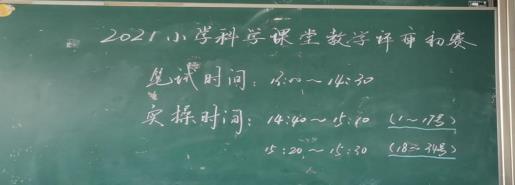 2021小学科学课堂教学评审初赛
笔试时间：13:00～14:30
实操时间：14:40～15:10 (1～17号)
15:20～15:50 (18～34号)